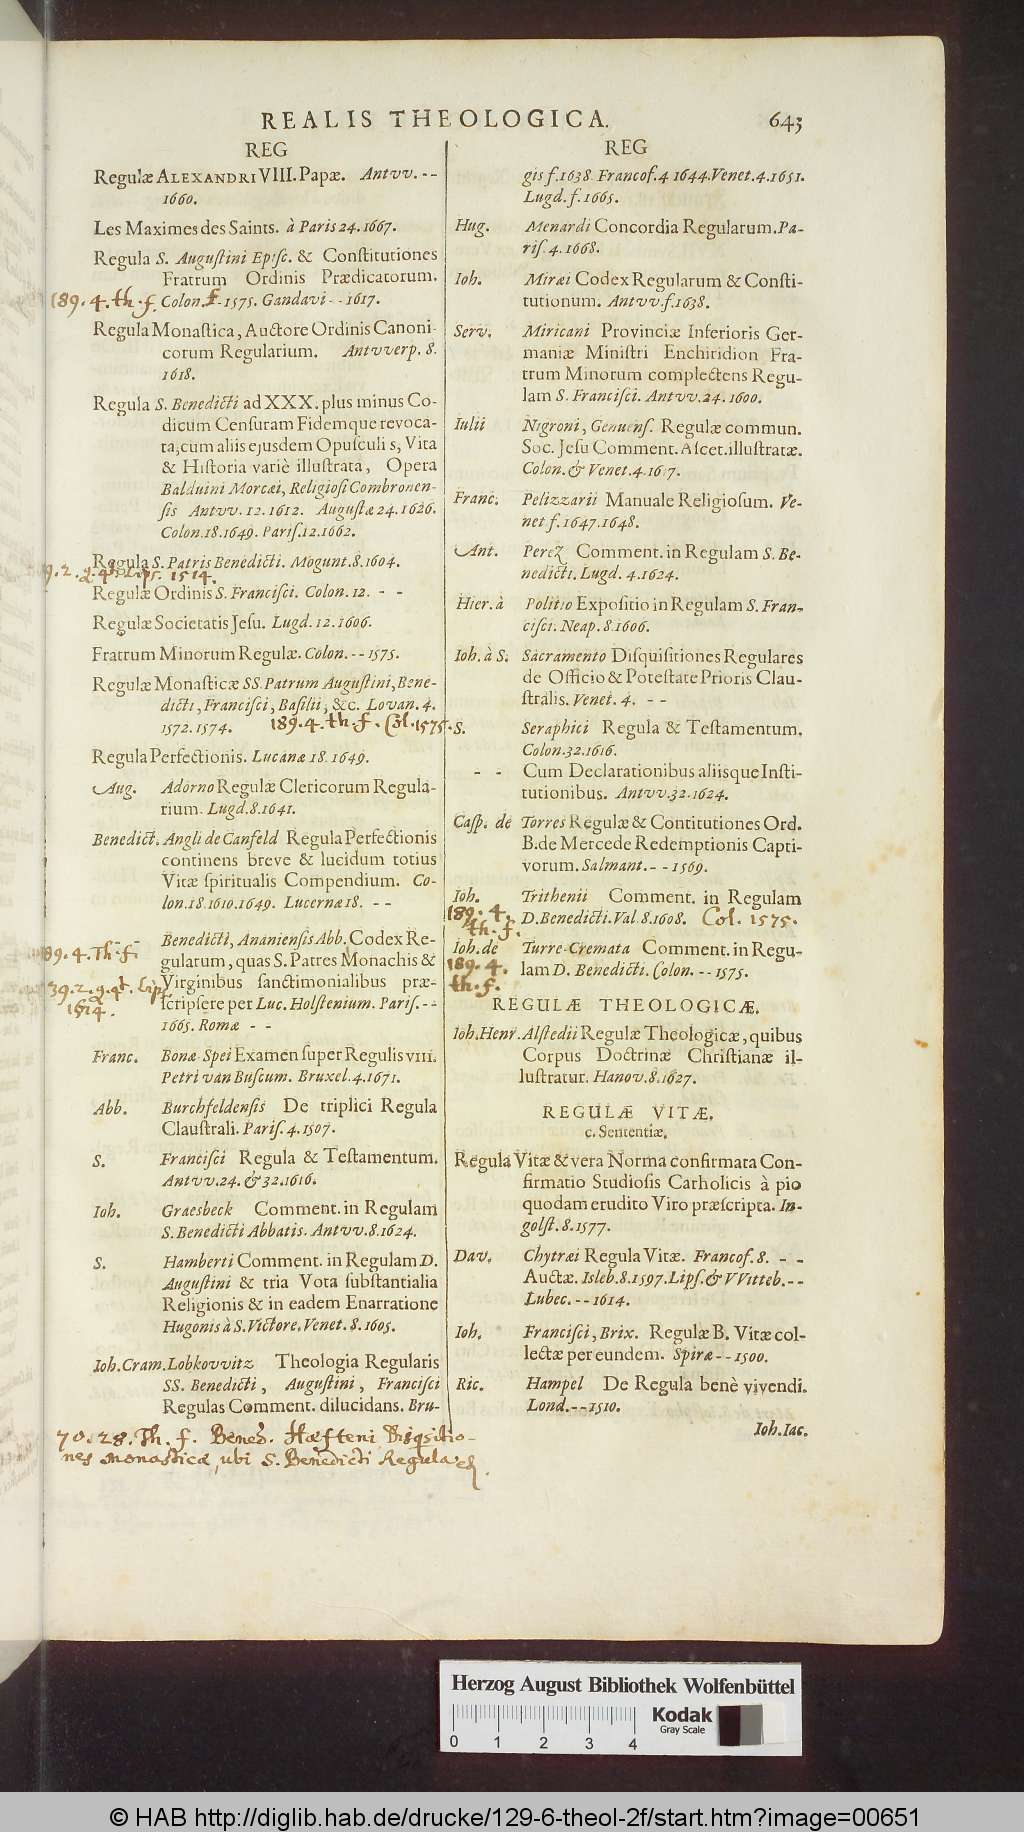 REALIS THEOLOGICA. 643
REG
Regulæ ALEXANDRI VIII. Papæ. Antvv. --
1660.
Les Maximes des Saints. à Paris 24. 1667.
Regula S. Augustini Episc. & Constitutiones
Fratrum Ordinis Prædicatorum.
189. 4. th. f. Colon. f. 1575. Gandavi -- 1617.
Regula Monastica, Auctore Ordinis Canoni-
corum Regularium. Antvverp. 8.
1618.
Regula S. Benedicti ad XXX. plus minus Co-
dicum Censuram Fidemque revoca-
ta, cum aliis ejusdem Opusculis, Vita
& Historia variè illustrata, Opera
Balduini Morcæi, Religiosi Combronen-
sis Antvv. 12. 1612. Augustæ 24. 1626.
Colon. 18. 1649. Paris. 12. 1662.
Regula S. Patris Benedicti. Mogunt. 8. 1604.
9. 2. q. 4t. Lips. 1514.
Regulæ Ordinis S. Francisci. Colon. 12. - -
Regulæ Societatis Jesu. Lugd. 12. 1606.
Fratrum Minorum Regulæ. Colon. -- 1575.
Regulæ Monasticæ SS. Patrum Augustini, Bene-
dicti, Francisci, Basilii, &c. Lovan. 4.
1572. 1574. 189. 4. th. f. Col. 1575.
Regula Perfectionis. Lucanæ 18. 1649.
Aug. Adorno Regulæ Clericorum Regula-
rium. Lugd. 8. 1641.
Benedict. Angli de Canfeld Regula Perfectionis
continens breve & lucidum totius
Vitæ spiritualis Compendium. Co-
lon. 18. 1610. 1649. Lucernæ 18. - -
Benedicti, Ananiensis Abb. Codex Re-
189. 4. Th. f. gularum, quas S. Patres Monachis &
39. 2. q. 4t. Lips. Virginibus sanctimonialibus præ-
1514. scripsere per Luc. Holstenium. Paris. --
1665. Romæ - -
Franc. Bonæ Spei Examen super Regulis VIII.
Petri van Buscum. Bruxel. 4. 1671.
Abb. Burchfeldensis De triplici Regula
Claustrali. Paris. 4. 1507.
S. Francisci Regula & Testamentum.
Antvv. 24. & 32. 1616.
Ioh. Graesbeck Comment. in Regulam
S. Benedicti Abbatis. Antvv. 8. 1624.
S. Hamberti Comment. in Regulam D.
Augustini & tria Vota substantialia
Religionis & in eadem Enarratione
Hugonis à S. Victore. Venet. 8. 1605.
Ioh. Cram. Lobkovvitz Theologia Regularis
SS. Benedicti, Augustini, Francisci
Regulas Comment. dilucidans. Bru-
70. 28. Th. f. Bened. Hæfteni Disqsitio-
nes monasticæ, ubi S. Benedicti Regula
REG
gis f. 1638. Francof. 4 1644. Venet. 4. 1651.
Lugd. f. 1665.
Hug. Menardi Concordia Regularum. Pa-
ris. 4. 1668.
Ioh. Miræi Codex Regularum & Consti-
tutionum. Antvv. f. 1638.
Serv. Miricani Provinciæ Inferioris Ger-
maniæ Ministri Enchiridion Fra-
trum Minorum complectens Regu-
lam S. Francisci. Antvv. 24. 1600.
Iulii Nigroni, Genuens. Regulæ commun.
Soc. Jesu Comment. Ascet. illustratæ.
Colon. & Venet. 4.
Franc. Pelizzarii Manuale Religiosum. Ve-
net f. 1647. 1648.
Ant. Perez Comment. in Regulam S. Be-
nedicti. Lugd. 4. 1624.
Hier. à Politio Expositio in Regulam S. Fran-
cisci. Neap. 8. 1606.
Ioh. à S. Sacramento Disquisitiones Regulares
de Officio & Potestate Prioris Clau-
stralis. Venet. 4. - -
S. Seraphici Regula & Testamentum.
Colon. 32. 1616.
- - Cum Declarationibus aliisque Insti-
tutionibus. Antvv. 32. 1624.
Casp. de Torres Regulæ & Contitutiones Ord.
B. de Mercede Redemptionis Capti-
vorum. Salmant. -- 1569.
Ioh. Trithenii Comment. in Regulam
189. 4. D. Benedicti. Val. 8. 1608. Col. 1575.
th. f.
Ioh. de Turre-Cremata Comment. in Regu-
189. 4. lam D. Benedicti. Colon. -- 1575.
th. f.
REGULÆ THEOLOGICÆ.
Ioh. Henr. Alstedii Regulæ Theologicæ, quibus
Corpus Doctrinæ Christianæ il-
lustratur. Hanov. 8. 1627.
REGULÆ VITÆ.
c. Sententiæ.
Regula Vitæ & vera Norma confirmata Con-
firmatio Studiosis Catholicis à pio
quodam erudito Viro præscripta. In-
golst. 8. 1577.
Dav. Chytræi Regula Vitæ. Francof. 8. - -
Auctæ. Isleb. 8. 1597. Lips. & VVitteb. --
Lubec. -- 1614.
Ioh. Francisci, Brix. Regulæ B. Vitæ col-
lectæ per eundem. Spiræ -- 1500.
Ric. Hampel De Regula benè vivendi.
Lond. -- 1510.
Ioh. Iac.
Herzog August Bibliothek Wolfenbüttel
0 1 2 3 4
Kodak
Gray Scale
© HAB http://diglib.hab.de/drucke/129-6-theol-2f/start.htm?image=00651